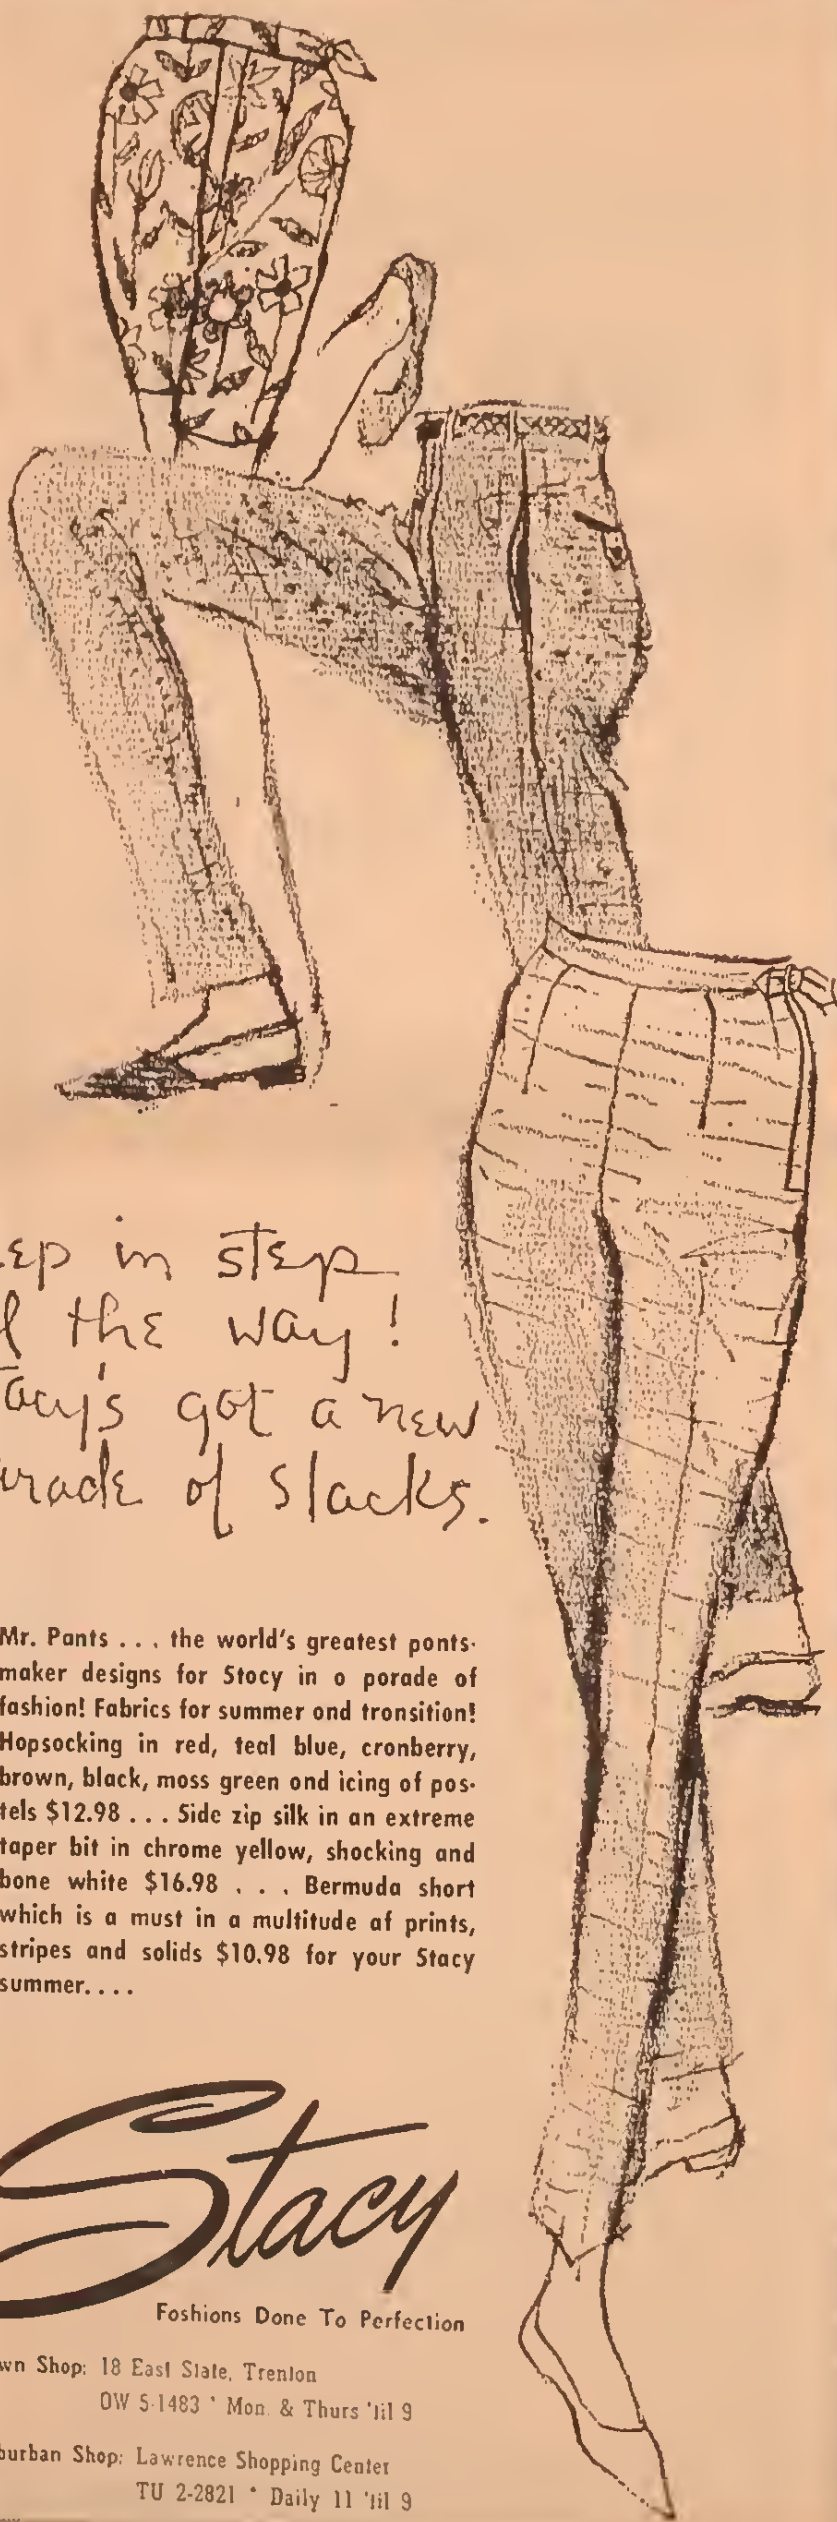 ep in step
l the way!
tacy's got a new
arade of slacks.
Mr. Pants . . . the world's greatest pants-
maker designs for Stacy in a parade of
fashion! Fabrics for summer and transition!
Hopsacking in red, teal blue, cranberry,
brown, black, moss green and icing of pas-
tels $12.98 . . . Side zip silk in an extreme
taper bit in chrome yellow, shocking and
bone white $16.98 . . . Bermuda short
which is a must in a multitude of prints,
stripes and solids $10.98 for your Stacy
summer....
Stacy
Fashions Done To Perfection
wn Shop: 18 East State, Trenton
OW 5-1483 * Mon. & Thurs 'til 9
burban Shop: Lawrence Shopping Center
TU 2-2821 * Daily 11 'til 9